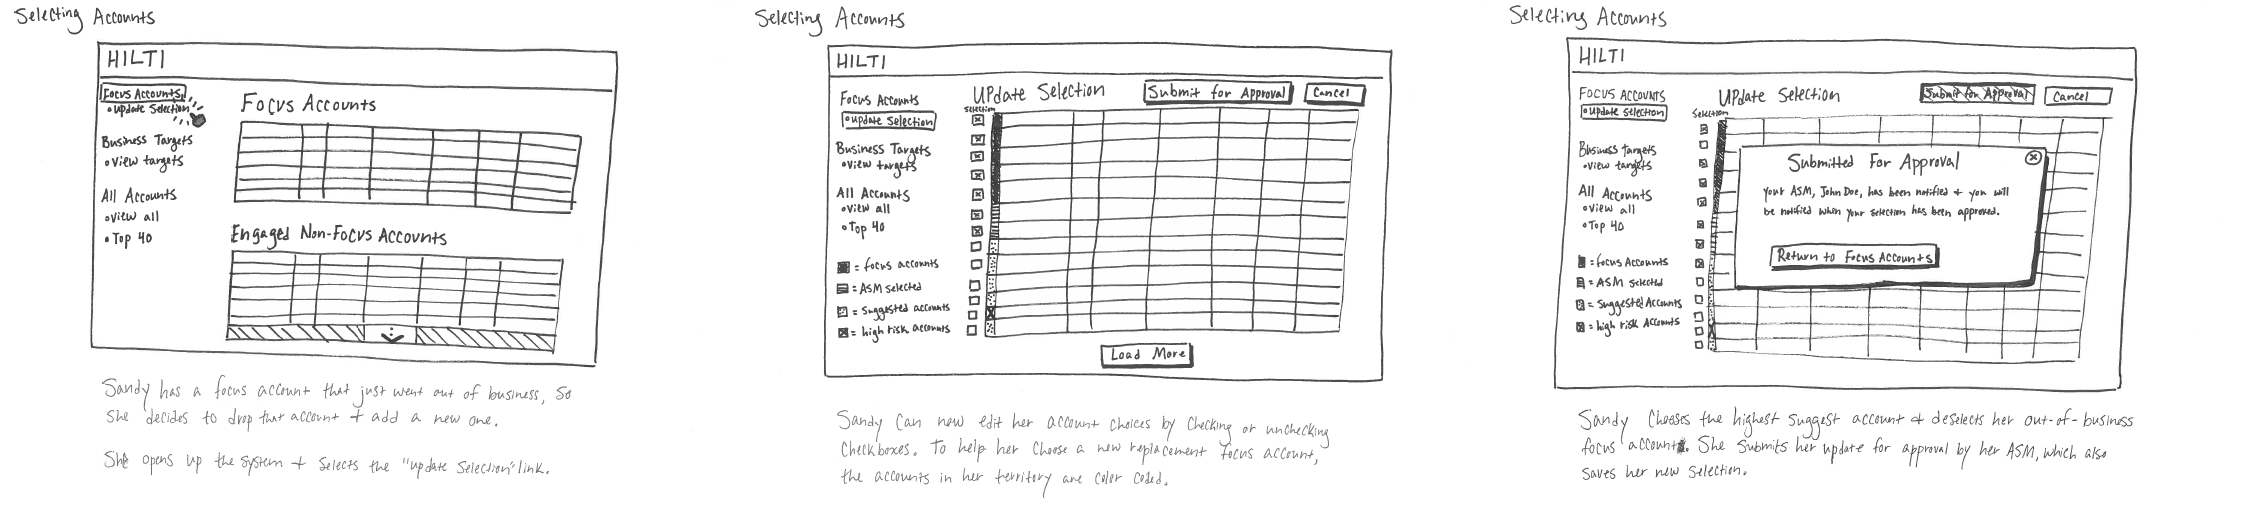 Selecting Accounts
HILTI
Focus Accounts
• Update Selection
Business Targets
• View targets
All Accounts
• View all
• Top 40
Focus Accounts
Engaged Non-Focus Accounts
Sandy has a focus account that just went out of business, so
she decides to drop that account + add a new one.
She opens up the system + selects the "update selection" link.
Selecting Accounts
HILTI
Focus Accounts
• Update Selection
Business Targets
• View targets
All Accounts
• View all
• Top 40
= focus accounts
= ASM selected
= suggested accounts
= high risk accounts
Update Selection
Submit for Approval
Cancel
Selection
Load More
Sandy can now edit her account choices by checking or unchecking
checkboxes. To help her choose a new replacement focus account,
the accounts in her territory are color coded.
Selecting Accounts
HILTI
Focus Accounts
• Update Selection
Business Targets
• View targets
All Accounts
• View all
• Top 40
= focus Accounts
= ASM selected
= suggested Accounts
= high risk Accounts
Update Selection
Submit for Approval
Cancel
Selection
Submitted For Approval
Your ASM, John Doe, has been notified + you will
be notified when your selection has been approved.
Return to Focus Accounts
Sandy chooses the highest suggest account + deselects her out-of-business
focus account. She submits her update for approval by her ASM, which also
saves her new selection.